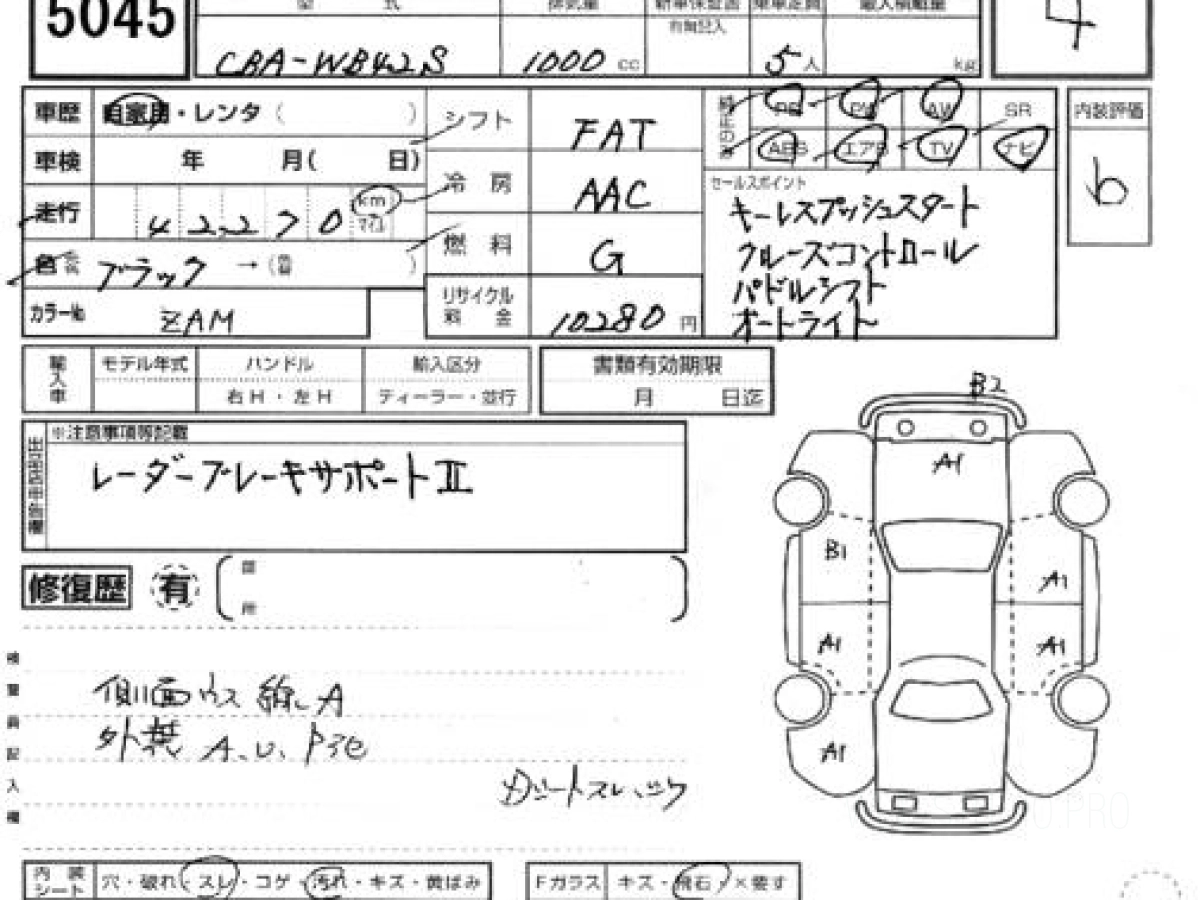 5045
型 式 排気量 新車保証書 乗車定員 最大積載量
有無記入
CBA-WB42S 1000 cc 5人 kg
4
車歴 自家用・レンタ ( )
シフト FAT
純正のみ PS PW AW SR
ABS エアB TV ナビ
内装評価
b
車検 年 月( 日)
冷房 AAC
セールスポイント
キーレスプッシュスタート
クルーズコントロール
パドルシフト
オートライト
走行 42270 km マイル
燃料 G
色 ブラック → ( )
リサイクル料金 10280 円
カラーNo ZAM
輸入車 モデル年式 ハンドル 輸入区分
右H・左H ディーラー・並行
書類有効期限
月 日迄
※注意事項等記載
レーダーブレーキサポートⅡ
修復歴 有
側面ウス線A
外装 A.U.
B2
A1
B1
A1
A1
A1
A1
内装シート 穴・破れ・スレ・コゲ・汚れ・キズ・黄ばみ
Fガラス キズ・飛石・×要す
O.PRO